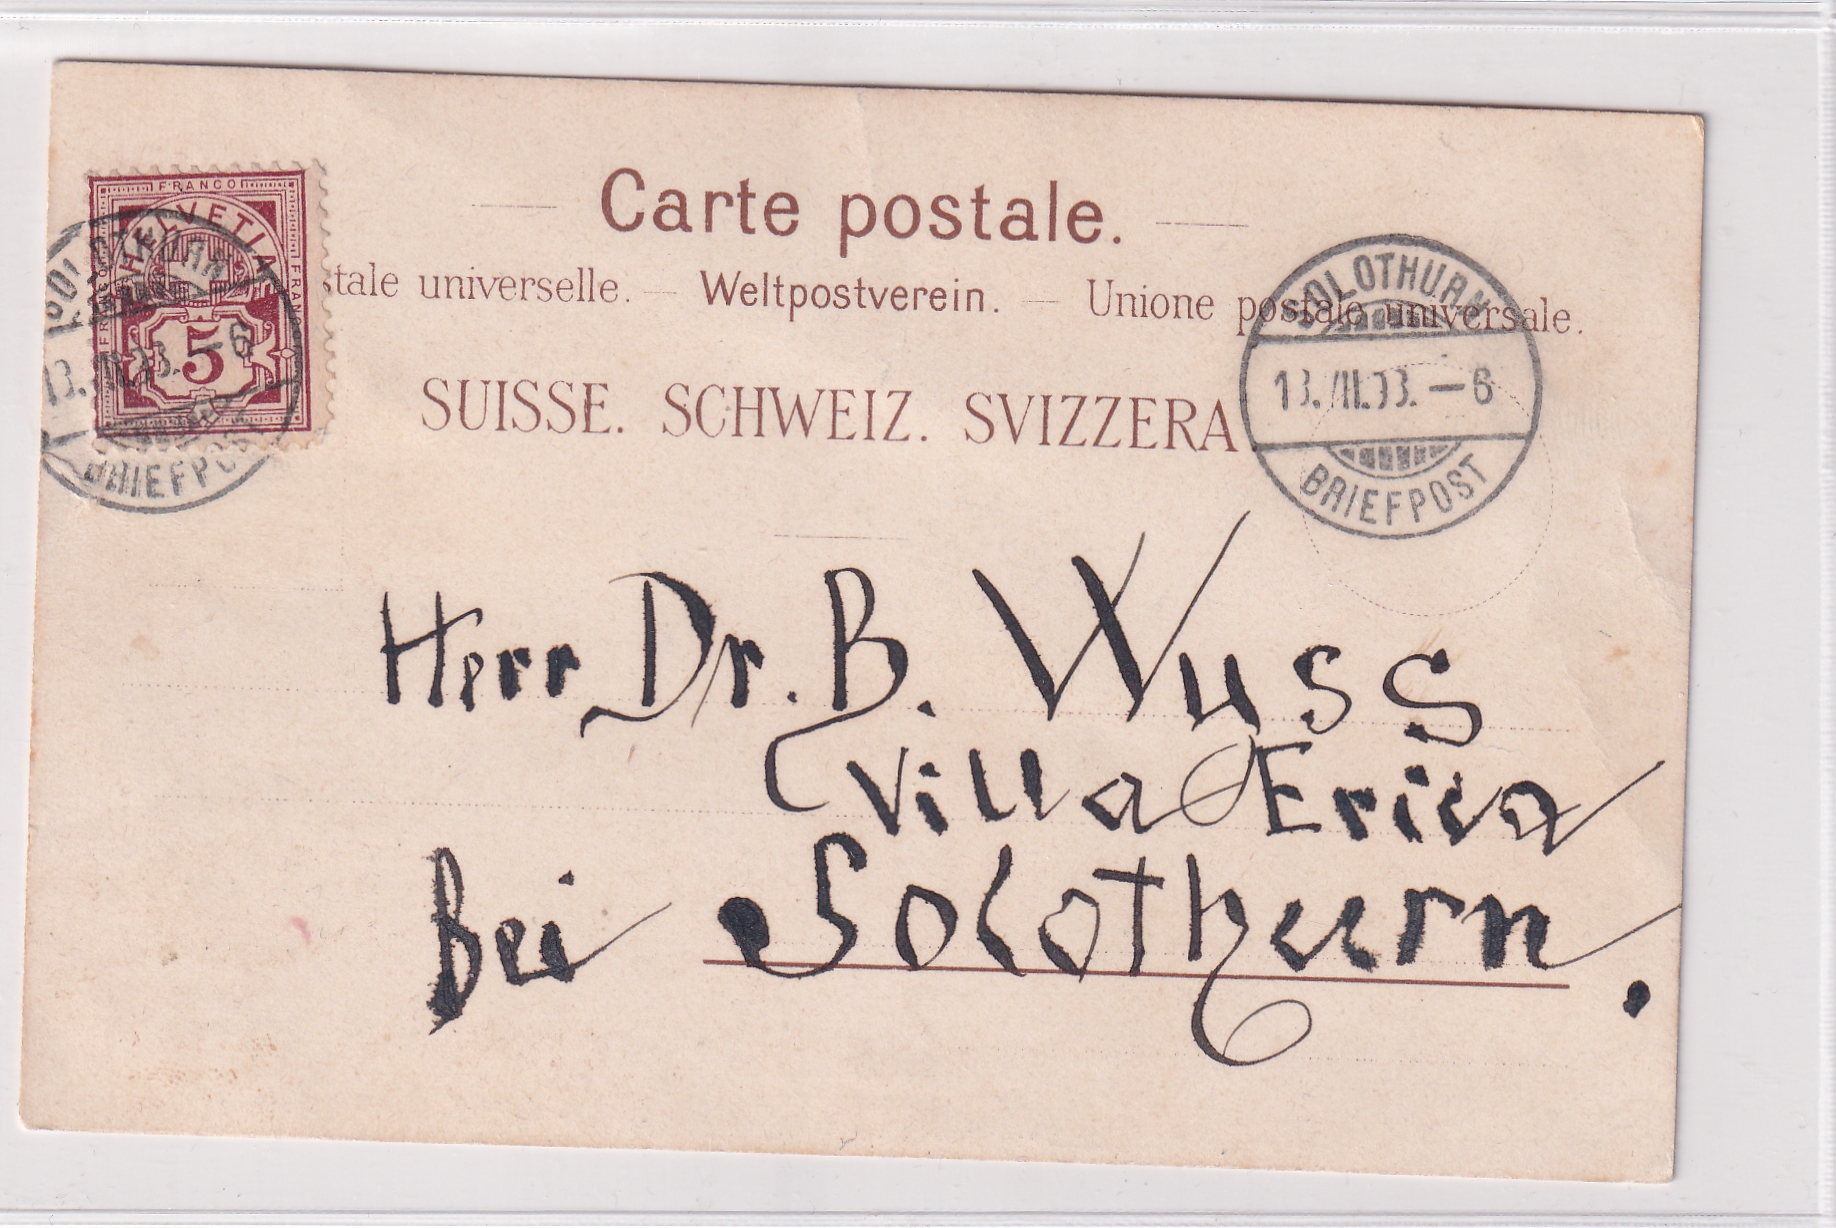 Carte postale.
stale universelle. — Weltpostverein. — Unione postale universale.
SUISSE. SCHWEIZ. SVIZZERA.
FRANCO
HELVETIA
FRANCO
FRANCO
5
SOLOTHURN
-6
BRIEFPOST
SOLOTHURN
13. -6
BRIEFPOST
Herr Dr. B. Wyss
Villa Erica
Bei Solothurn.